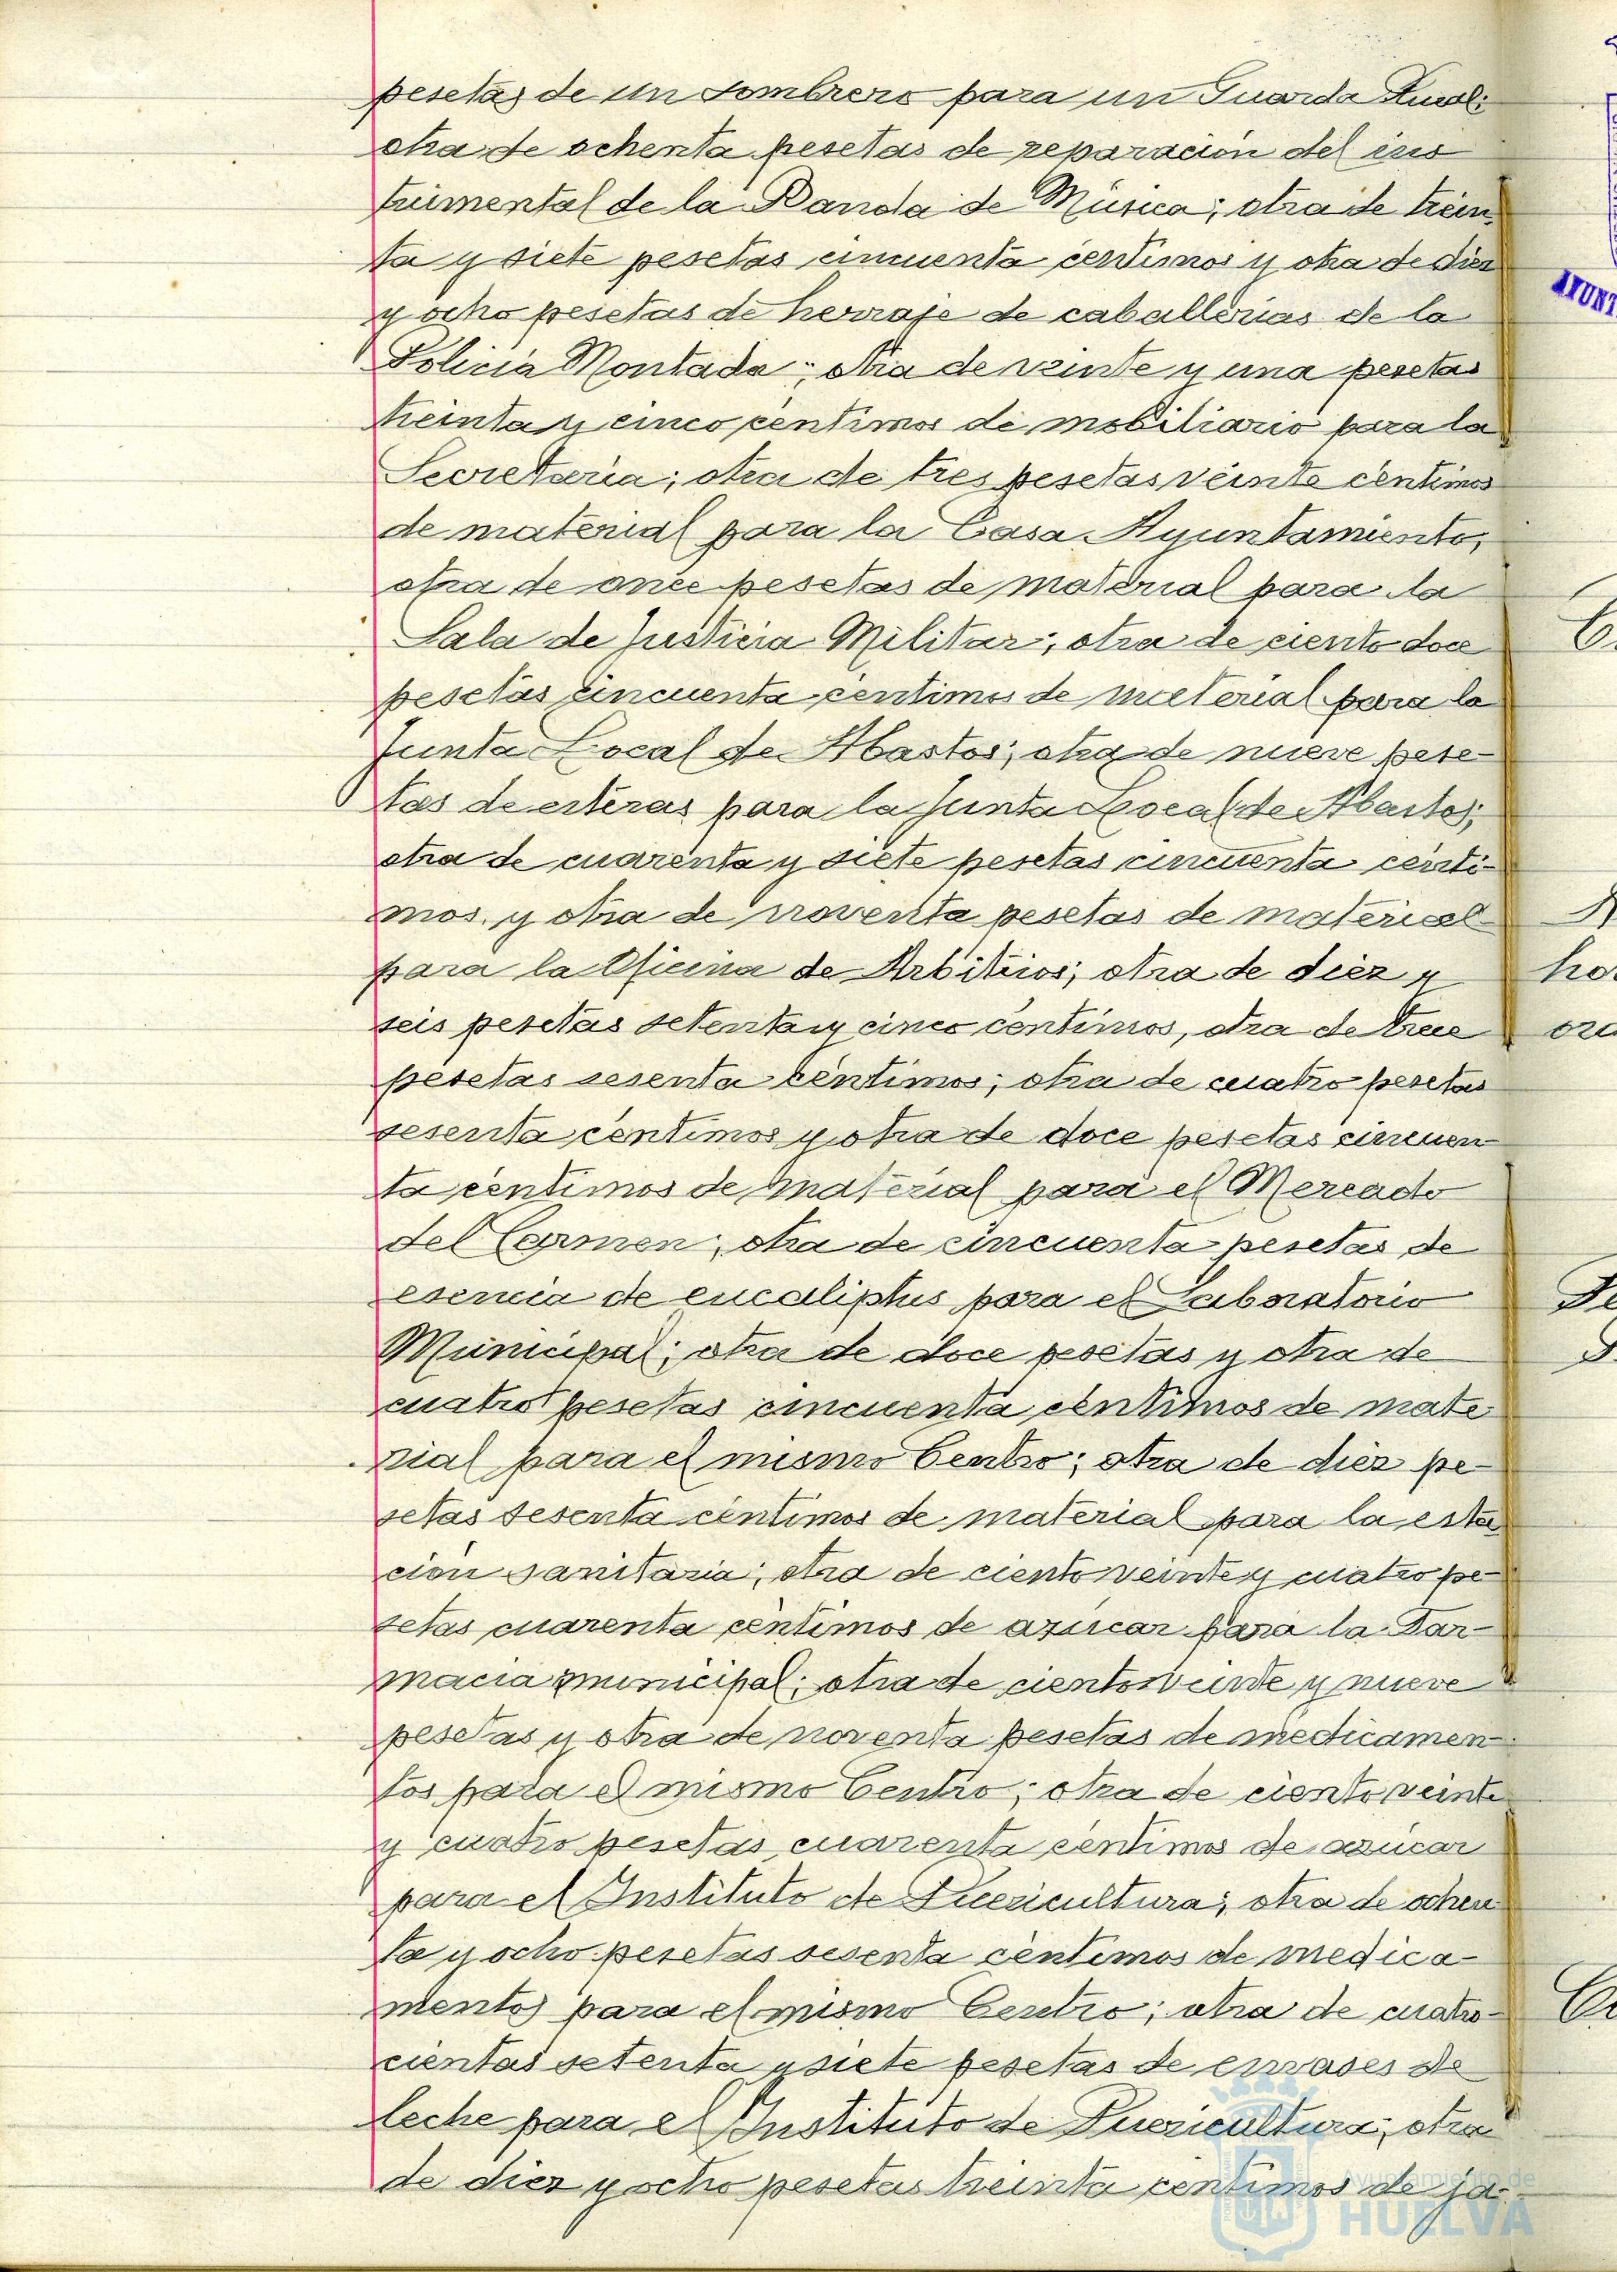 pesetas de un sombrero para un Guarda Rural;
otra de ochenta pesetas de reparación del ins
trumental de la Banda de Música; otra de trein
ta y siete pesetas cincuenta centimos y otra de diez
y ocho pesetas de herraje de caballerias de la
Policia Montada; otra de veinte y una pesetas
treinta y cinco centimos de mobiliario para la
Secretaria; otra de tres pesetas veinte centimos
de material para la Casa Ayuntamiento;
otra de once pesetas de material para la
Sala de Justicia Militar; otra de ciento doce
pesetas cincuenta centimos de material para la
Junta Local de Abastos; otra de nueve pese-
tas de esteras para la Junta Local de Abastos;
otra de cuarenta y siete pesetas cincuenta centi-
mos y otra de noventa pesetas de material
para la Oficina de Arbitrios; otra de diez y
seis pesetas setenta y cinco centimos, otra de trece
pesetas sesenta centimos; otra de cuatro pesetas
sesenta centimos y otra de doce pesetas cincuen
ta centimos de material para el Mercado
del Carmen; otra de cincuenta pesetas de
esencia de eucaliptus para el Laboratorio
Municipal; otra de doce pesetas y otra de
cuatro pesetas cincuenta centimos de mate
rial para el mismo Centro; otra de diez pe-
setas sesenta centimos de material para la esta
ción sanitaria; otra de ciento veinte y cuatro pe-
setas cuarenta centimos de azucar para la Far-
macia municipal; otra de ciento veinte y nueve
pesetas y otra de noventa pesetas de medicamen
tos para el mismo Centro; otra de ciento veinte
y cuatro pesetas cuarenta centimos de azucar
para el Instituto de Puericultura; otra de ochen
ta y ocho pesetas sesenta centimos de medica-
mentos para el mismo Centro; otra de cuatro-
cientas setenta y siete pesetas de envases de
leche para el Instituto de Puericultura; otra
de diez y ocho pesetas treinta centimos de ja-
Ayuntamiento de
HUELVA
AYUNT
ho